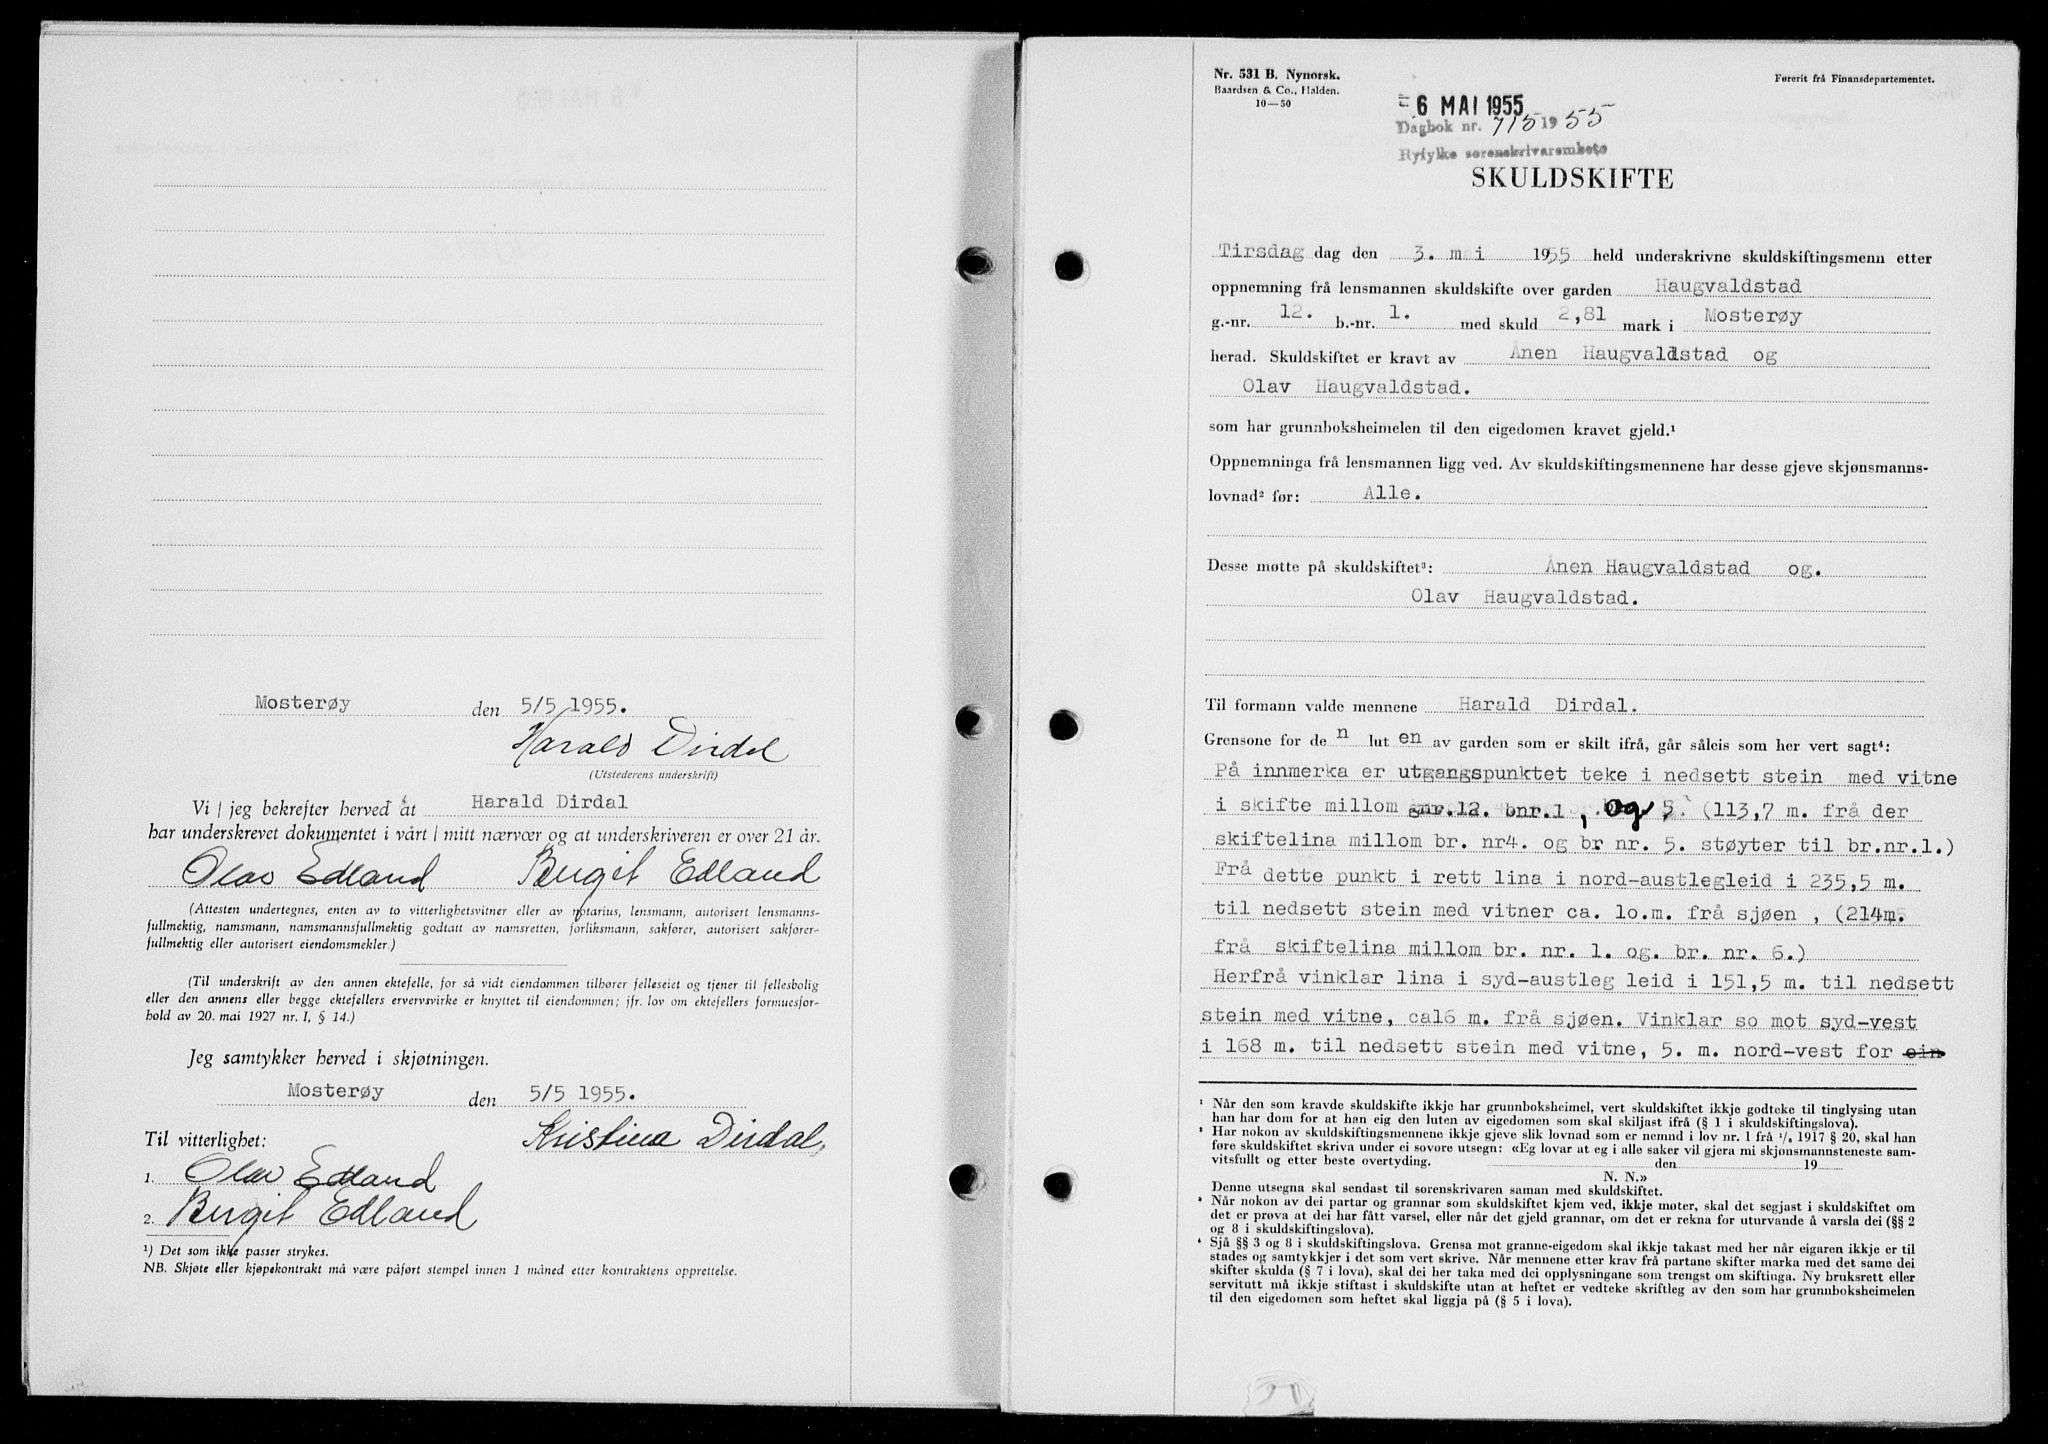 Mosterøy den 5/5 1955.
Harald Dirdal
(Utstederens underskrift)
Vi / jeg bekrefter herved at Harald Dirdal
har underskrevet dokumentet i vårt / mitt nærvær og at underskriveren er over 21 år.
Olav Edland Birgit Edland
(Attesten undertegnes, enten av to vitterlighetsvitner eller av notarius, lensmann, autorisert lensmanns-
fullmektig, namsmann, namsmannsfullmektig godtatt av namsretten, forliksmann, sakfører, autorisert sakfører-
fullmektig eller autorisert eiendomsmekler.)
(Til underskrift av den annen ektefelle, for så vidt eiendommen tilhører felleseiet og tjener til fellesbolig
eller den annens eller begge ektefellers ervervsvirke er knyttet til eiendommen; jfr. lov om ektefellers formuesfor-
hold av 20. mai 1927 nr. 1, § 14.)
Jeg samtykker herved i skjøtningen.
Mosterøy den 5/5 1955.
Til vitterlighet: Kristina Dirdal,
1. Olav Edland
2. Birgit Edland
¹) Det som ikke passer strykes.
NB. Skjøte eller kjøpekontrakt må være påført stempel innen 1 måned etter kontraktens opprettelse.
Nr. 531 B. Nynorsk.
Baardsen & Co., Halden.
10—50
Førerit frå Finansdepartementet.
- 6 MAI 1955
Dagbok nr. 715 1955
Ryfylke sorenskrivarembete
SKULDSKIFTE
Tirsdag dag den 3. mai 1955 held underskrivne skuldskiftingsmenn etter
oppnemning frå lensmannen skuldskifte over garden Haugvaldstad
g.-nr. 12. b.-nr. 1. med skuld 2,81 mark i Mosterøy
herad. Skuldskiftet er kravt av Ånen Haugvaldstad og
Olav Haugvaldstad.
som har grunnboksheimelen til den eigedomen kravet gjeld.¹
Oppnemninga frå lensmannen ligg ved. Av skuldskiftingsmennene har desse gjeve skjønsmanns-
lovnad² før: Alle.
Desse møtte på skuldskiftet³: Ånen Haugvaldstad og.
Olav Haugvaldstad.
Til formann valde mennene Harald Dirdal.
Grensone for de n lut en av garden som er skilt ifrå, går såleis som her vert sagt⁴:
På innmerka er utgangspunktet teke i nedsett stein med vitne
i skifte millom gnr.12. bnr.1, og 5. (113,7 m. frå der
skiftelina millom br. nr4. og br nr. 5. støyter til br.nr.1.)
Frå dette punkt i rett lina i nord-austlegleid i 235,5 m.
til nedsett stein med vitner ca. 1o.m. frå sjøen , (214m.
frå skiftelina millom br. nr. 1. og. br. nr. 6.)
Herfrå vinklar lina i syd-austleg leid i 151,5 m. til nedsett
stein med vitne, ca16 m. frå sjøen. Vinklar so mot syd-vest
i 168 m. til nedsett stein med vitne, 5. m. nord-vest for ein
¹ Når den som kravde skuldskifte ikkje har grunnboksheimel, vert skuldskiftet ikkje godteke til tinglysing utan
han har dom for at han eig den luten av eigedomen som skal skiljast ifrå (§ 1 i skuldskiftingslova).
² Har nokon av skuldskiftingsmennene ikkje gjeve slik lovnad som er nemnd i lov nr. 1 frå 1/6 1917 § 20, skal han
føre skuldskiftet skriva under ei sovore utsegn: «Eg lovar at eg i alle saker vil gjera mi skjønsmannsteneste sam-
vitsfullt og etter beste overtyding. den 19
N. N.»
Denne utsegna skal sendast til sorenskrivaren saman med skuldskiftet.
³ Når nokon av dei partar og grannar som skuldskiftet kjem ved, ikkje møter, skal det segjast i skuldskiftet om
det er prøva at dei har fått varsel, eller når det gjeld grannar, om det er rekna for uturvande å varsla dei (§§ 2
og 8 i skuldskiftingslova).
⁴ Sjå §§ 3 og 8 i skuldskiftingslova. Grensa mot granne-eigedom skal ikkje takast med her når eigaren ikkje er til
stades og samtykkjer i det som vert skrive. Når mennene etter krav frå partane skifter marka med det same dei
skifter skulda (§ 7 i lova), skal dei her taka med dei opplysningane som trengst om skiftinga. Ny bruksrett eller
servitutt må ikkje stiftast i skuldskifte utan at heftet er vedteke skriftleg av den som har grunnboksheimelen
til den eigedomen som heftet skal liggja på (§ 5 i lova).